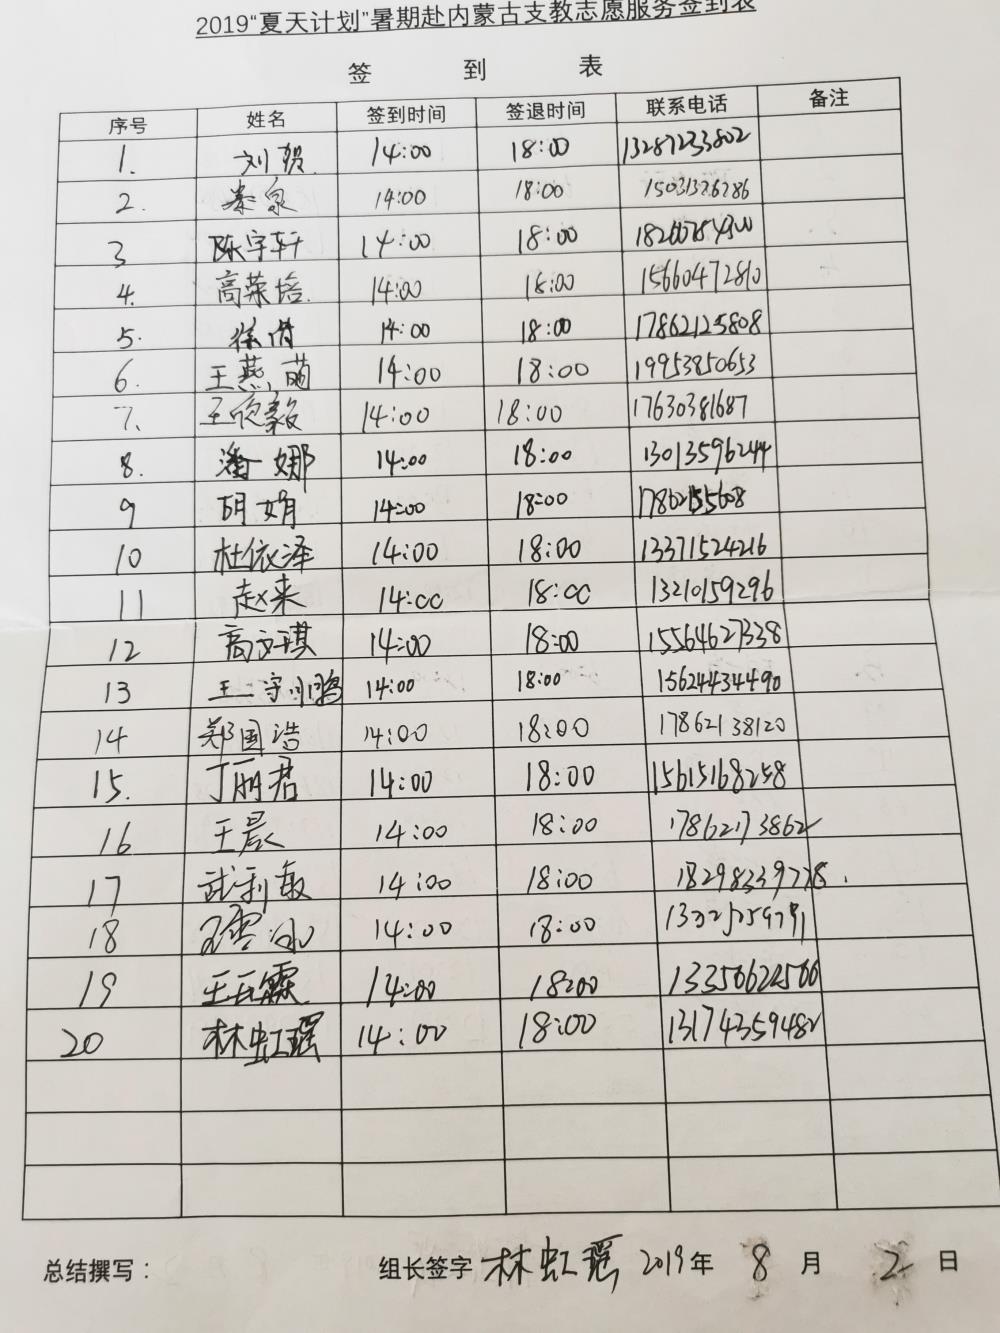 2019“夏天计划”暑期赴内蒙古支教志愿服务签到表
签 到 表
序号 姓名 签到时间 签退时间 联系电话 备注
1. 刘毅 14:00 18:00 13287233802
2. 秦泉 14:00 18:00 15031326286
3 陈宇轩 14:00 18:00
4. 高荣培. 14:00 18:00 15660472810
5. 徐倩 14:00 18:00 17862125808
6. 王燕萌 14:00 18:00 19953850653
7. 王欣毅 14:00 18:00 17630381687
8. 潘娜 14:00 18:00 13013596244
9 胡娟 14:00 18:00 17862155608
10 杜依泽 14:00 18:00 13371524216
11 赵来 14:00 18:00 13210159296
12 高文琪 14:00 18:00 15564627338
13 14:00 18:00 15624434490
14 郑国浩 14:00 18:00 17862138120
15. 丁丽君 14:00 18:00 15615168258
16 王晨 14:00 18:00 17862173862
17 武利敏 14:00 18:00 18298339778.
18 14:00 18:00
19 王玉霖 14:00 18:00 13356622566
20 林虹瑶 14:00 18:00 13174359482
总结撰写： 组长签字 林虹瑶 2019年 8 月 2 日